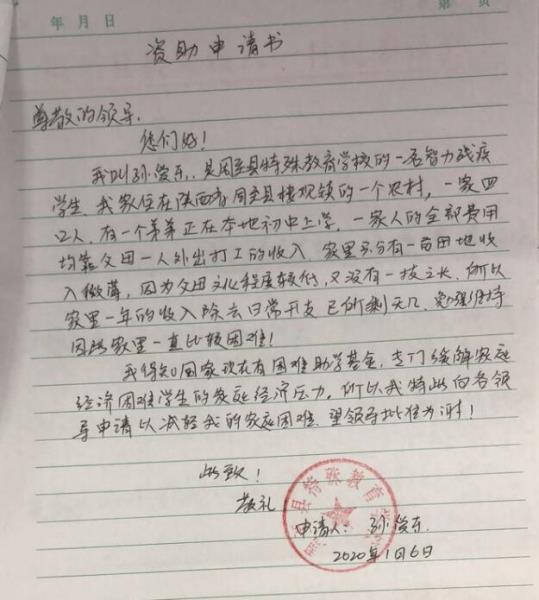 年 月 日
第 页
资助申请书
尊敬的领导,
您们好!
我叫孙俊东,是周至县特殊教育学校的一名智力残疾
学生,我家住在陕西省周至县楼观镇的一个农村,一家四
口人,有一个弟弟正在本地初中上学,一家人的全部费用
均靠父母一人外出打工的收入,家里只有一亩田地收
入微薄,因为父母文化程度较低,又没有一技之长,所以
家里一年的收入除去日常开支已所剩无几,勉强维持
因此家里一直比较困难!
我得知国家现在有困难助学基金,专门缓解家庭
经济困难学生的家庭经济压力,所以我特此向各领
导申请以减轻我的家庭困难,望领导批准为谢!
此致!
敬礼
县特殊教育
申请人:孙俊东
2020年1月6日